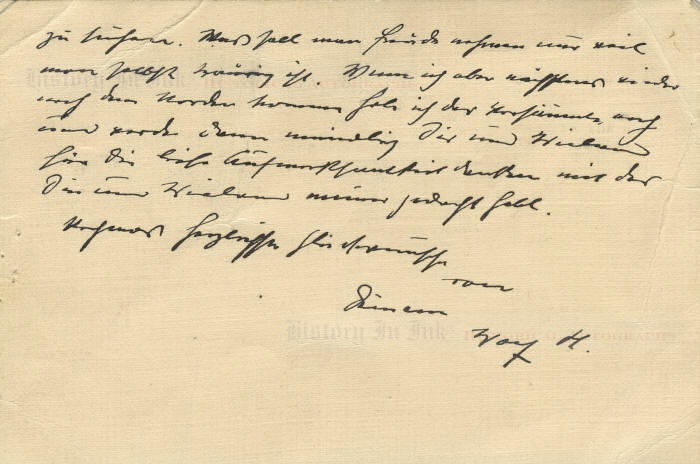 zu suchen. Was soll man Freude nehmen nur weil
man selbst traurig ist. Wenn ich aber nächstens wieder
nach dem Norden komme hole ich das Versäumte nach
und werde dann mündlich Dir und Wieland
für die liebe Aufmerksamkeit danken mit der
Du und Wieland meiner gedacht habt.
Nochmals herzlichste Glückwünsche
von
Deinem
Wolf H.
History In Ink